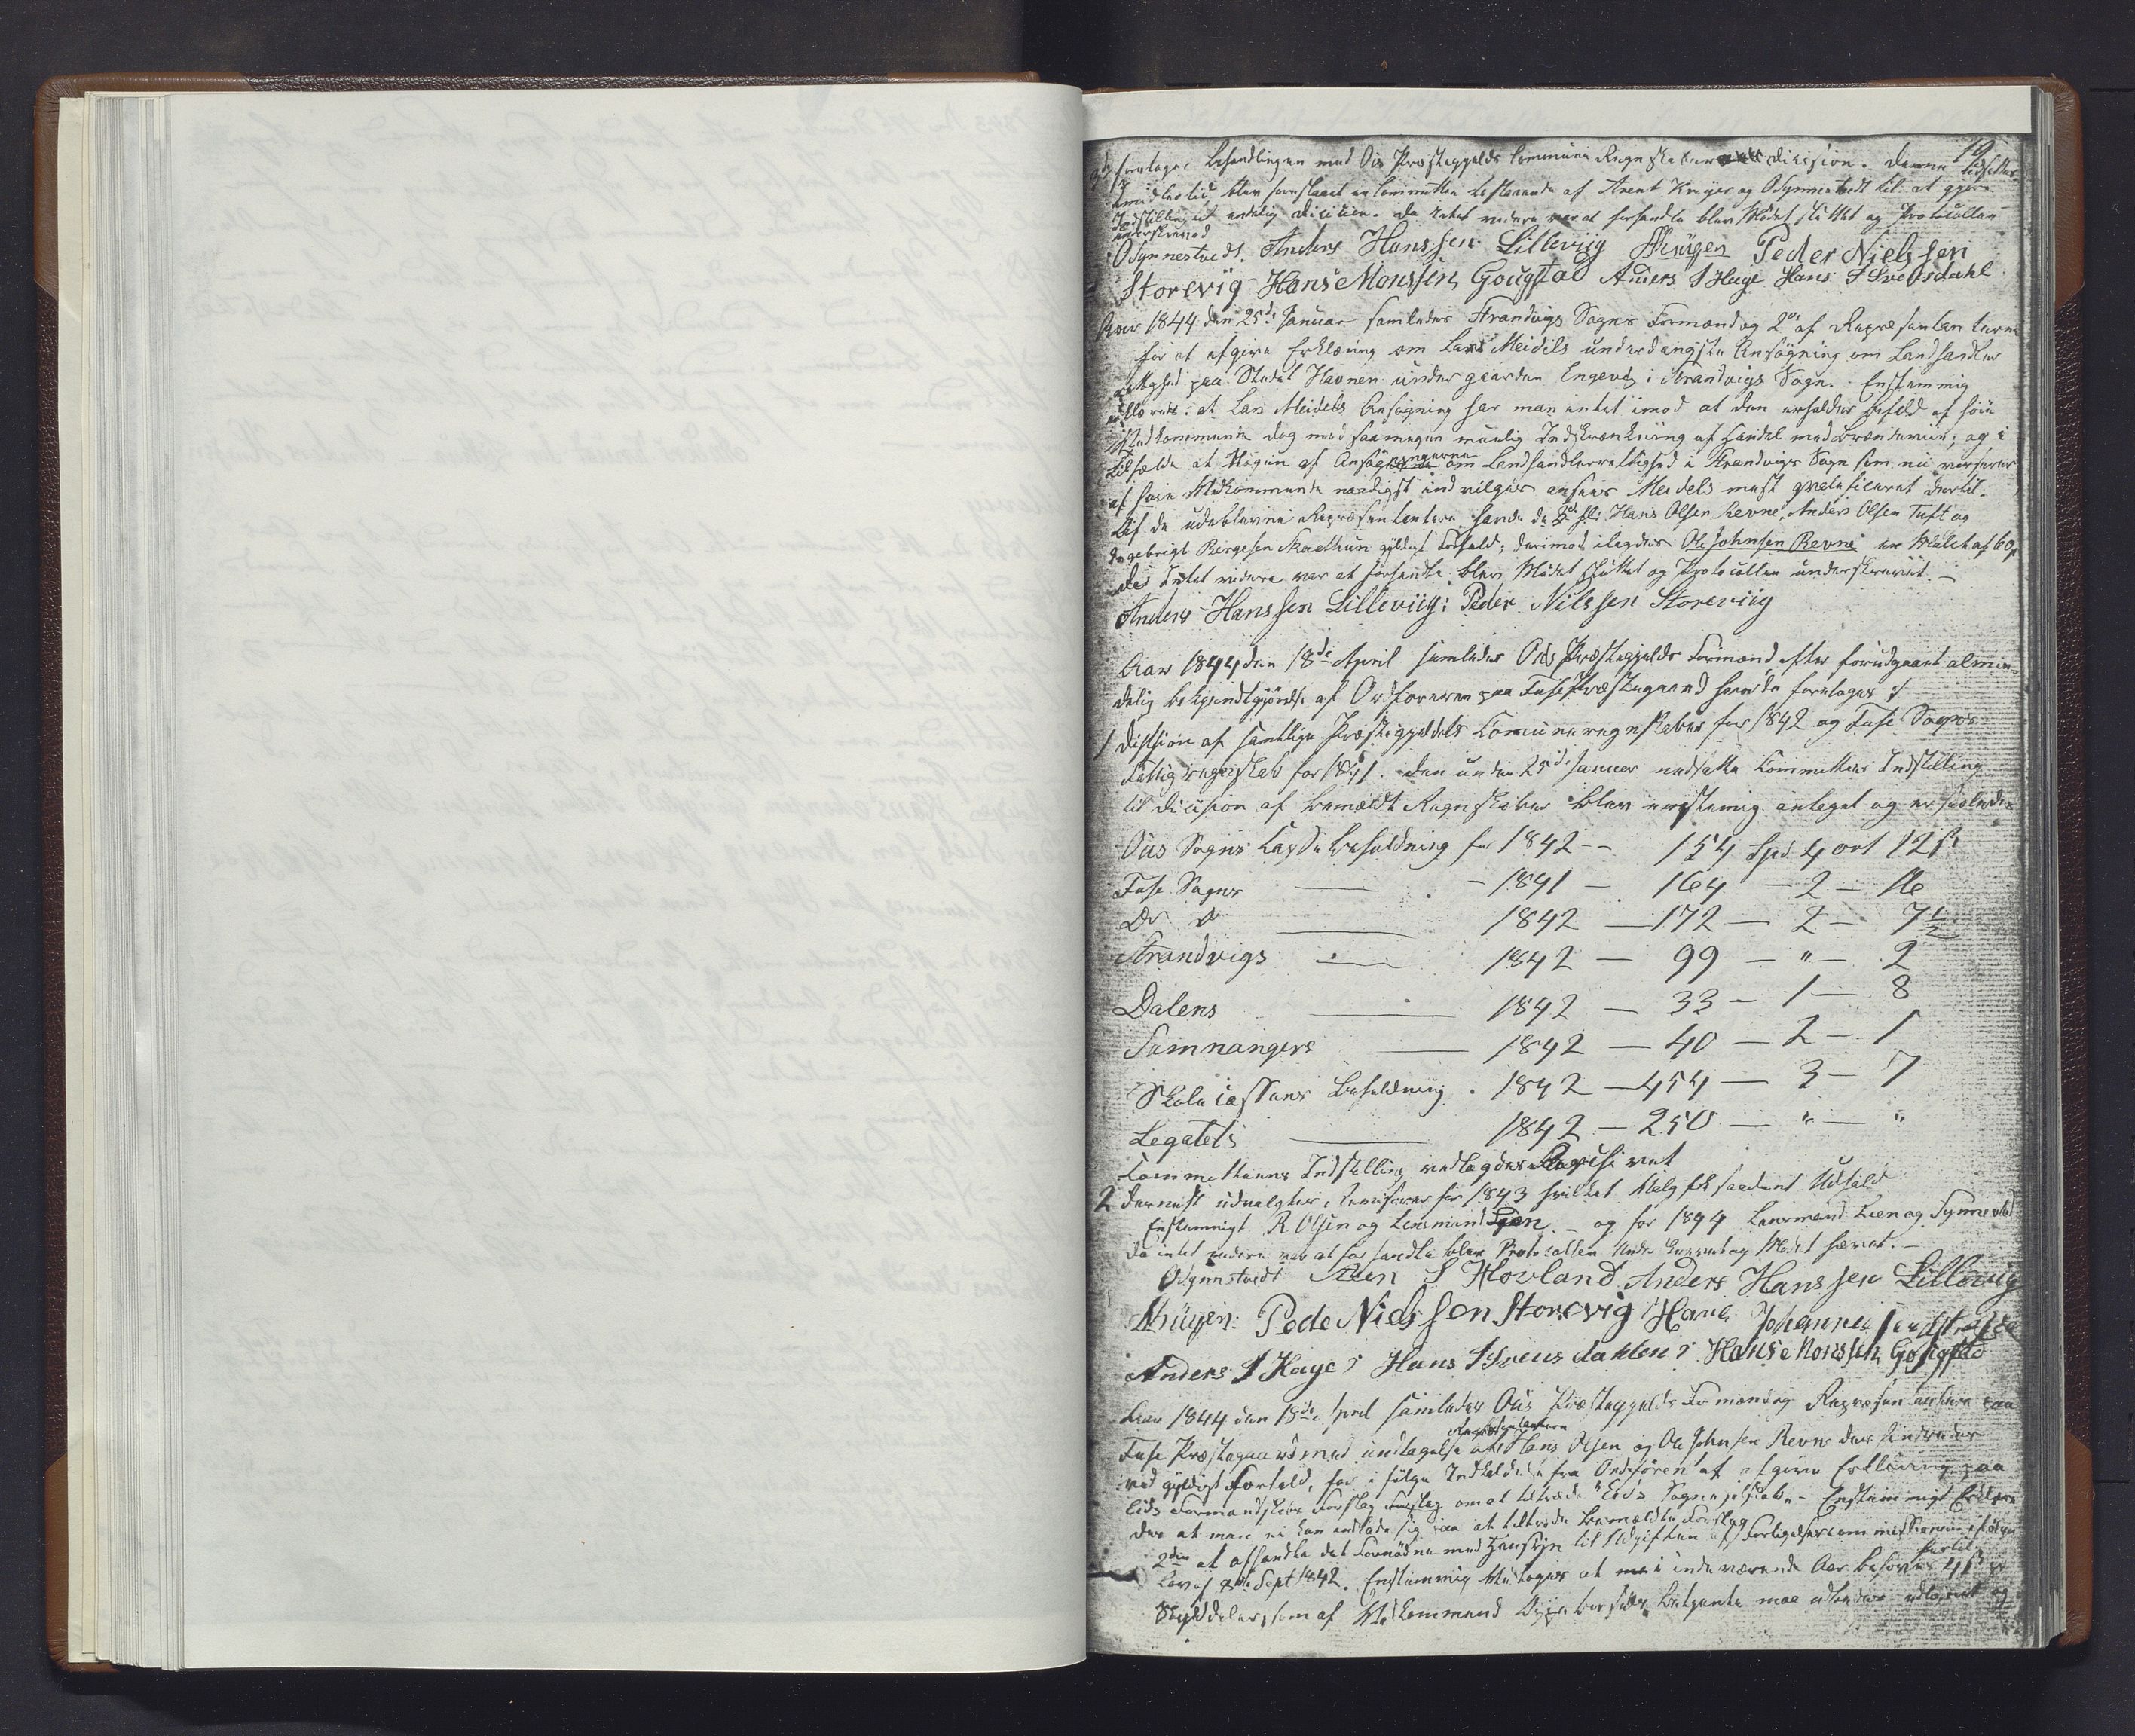 19
3 foretages Behandlingen med Ous Præstegjelds Commune Regnskaber Decision. Denne udsættes
imidlertid, blev foreslaaet en Committee bestaaende af Arent Krüger og O Synnestvedt til at gjøre
Indstilling til endelig Decision. Da intet videre var at forhandle blev Mødet sluttet og Protocollen
underskrevet
O Synnestvedt. Anders Hanssen Lilleviig AKrüger Peder Nielssen
Storevig Hans Monssen Gougstad Anders S Hage Hans S Svendsdahl
Aar 1844 den 25de Januar samledes Strandvigs Sogns Formænd og 2de af Repræsentanterne
for at afgive Erklæring om Lars Meidels underdanigste Ansøgning om Landhandler
rettighed paa Stedet Havnen under gaarden Engevig i Strandvigs Sogn. Enstemmig
erklærede: at Lars Meidels Ansøgning har man intet imod at den erholder Bifald af høie
Vedkommende dog med saamegen muelig Indskrænkning af Handel med Brændeviin, og i
Tilfælde at Nogen af Ansøgningerne om Landhandlerrettighed i Strandvigs Sogn som nu verserer
af høie Vedkommende naadigst indvilges ansees Meidels mest qvalificeret dertil.
Af de udeblevne Repræsentantere havde de 3de fl: Hans Olsen Revne, Anders Olsen Tuft og
Ingebrigt Børgesen Skaathun gyldigt Forfald; derimod ilagdes Ole Johnsen Revne en Mulct af 60 s
Da Intet videre var at forhandle blev Mødet sluttet og Protocollen underskrevet. —
Anders Hanssen Lilleviig: Peder Nilssen Storeviig
Aar 1844 den 18de April samledes Ous Præstegjelds Formænd efter forudgaaet almin-
delig bekjendtgjørelse af Ordføreren paa Fuse Præstegaard hvorda foretoges:
1 Dission af samtlige Præstegjeldets Communeregnskaber for 1842 og Fuse Sogns
Fattigregnskab for 1841. Den under 25de Januar nedsatte Committees Indstilling
til Decision af bemeldte Regnskaber blev enstemig antaget og er saaledes
Ous Sogns Casse Beholdning for 1842 — 154 Spd 4 ort 12 s
Fuse Sogns — 1841 — 164 — 2 — 16
Do do — 1842 — 172 — 2 — 7½
Strandvigs — 1842 — 99 — " — 2
Dalens — 1842 — 33 — 1 — 8
Samnangers — 1842 — 40 — 2 — 1
Skole Cassens Beholdning . 1842 — 454 — 3 — 7
Legatets — 1842 — 250 — " — "
Committeens Indstilling vedlagdes Archivet
2 Dernæst udvalgtes Revisorer for 1843 hvilket Valg fik saadant Udfald
Enstemmigt R. Olsen og Lensmand Lien — og for 1844 Lensmand Lien og Synnestvedt
Da intet videre var at forhandle blev Protocollen Underskrevet og Mødet hævet. —
O Synnstvedt Sten S Hovland Anders Hanssen Lilleviig
AKrüger: Pede Nielssen Storevig Hans Johannes
Anders S Hage: Hans S Svensdahlen: Hans Monssen Gougstad
Aar 1844 den 18de April samledes Ous Præstegjelds Formænd og Repræsentantere paa
Repræsentanterne
Fuse Præstegaard med undtagelse af Hans Olsen og Ole Johnsen Revne der hindredes
ved gyldigt Forfald, for i følge Indkaldelse fra Ordføren at afgive Erklæring paa
Eids Formandskabs Forslag om at tiltræde "Eids Sogneselskab" — Enstemmigt
des at man ei kan indlade sig paa at tiltræde bemældte Forslag
2den at afhandle det Fornødne med Hensyn til Udgiften af Forligelsescommissionen ifølge
hertil
Lov af Sept 1842. Enstemmig vedtoges at i indeværende Aar behøves 4 s pr
Skylddaler, som af Vedkommende